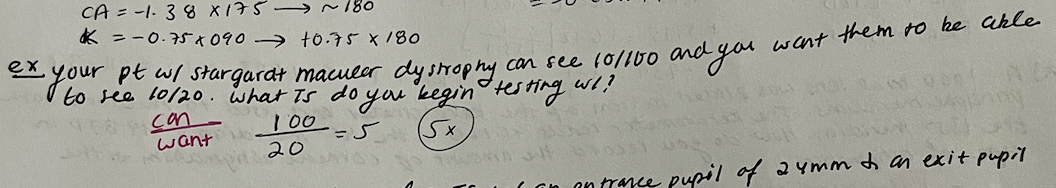 CA = -1.38 x175 → ~180
K = -0.75 x 090 → +0.75 x 180
ex your pt w/ stargardt macular dystrophy can see 10/100 and you want them to be able
to see 10/20. What TS do you begin testing w/?
can 100
want 20 = 5 5x
entrance pupil of 24mm & an exit pupil